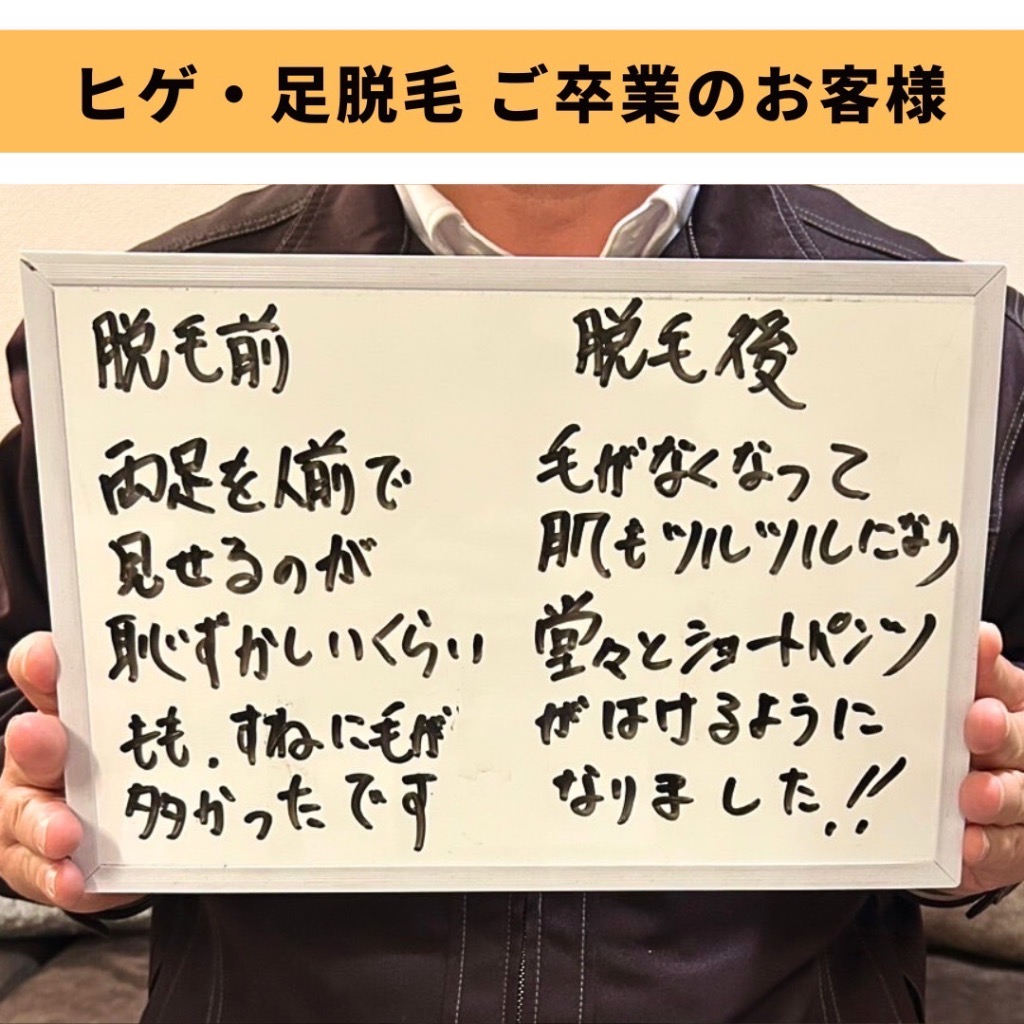 ヒゲ・足脱毛 ご卒業のお客様
脱毛前
両足を人前で
見せるのが
恥ずかしいくらい
もも、すねに毛が
多かったです
脱毛後
毛がなくなって
肌もツルツルになり
堂々とショートパンツ
がはけるように
なりました!!